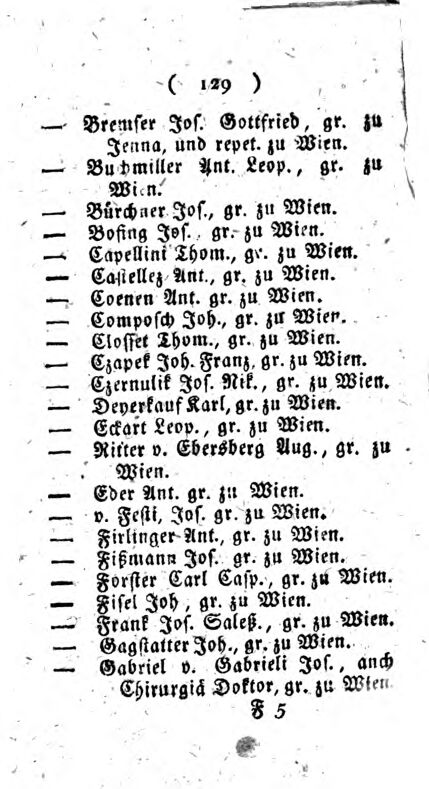 ( 129 )
— Bremser Jos. Gottfried, gr. zu
Jenna, und repet. zu Wien.
— Buchmiller Ant. Leop., gr. zu
Wien.
— Bürchner Jos., gr. zu Wien.
— Bosing Jos. gr. zu Wien.
— Capellini Thom., gr. zu Wien.
— Castellez Ant., gr. zu Wien.
— Coenen Ant. gr. zu Wien.
— Composch Joh., gr. zu Wien.
— Closset Thom., gr. zu Wien.
— Czapek Joh. Franz, gr. zu Wien.
— Czernulik Jos. Nik., gr. zu Wien.
— Deyerkauf Karl, gr. zu Wien.
— Eckart Leop., gr. zu Wien.
— Ritter v. Ebersberg Aug., gr. zu
Wien.
— Eder Ant. gr. zu Wien.
— v. Festi, Jos. gr. zu Wien.
— Firlinger Ant., gr. zu Wien.
— Fißmann Jos. gr. zu Wien.
— Forster Carl Casp., gr. zu Wien.
— Fisel Joh, gr. zu Wien.
— Frank Jos. Saleß., gr. zu Wien.
— Gagstatter Joh., gr. zu Wien.
— Gabriel v. Gabrieli Jos., anch
Chirurgiä Doktor, gr. zu Wien.
F 5